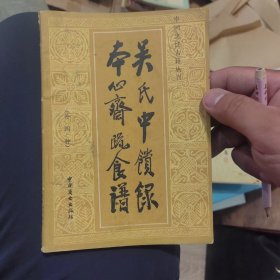 中国烹饪古籍丛刊
吴氏中馈录
本心斋疏食谱
（外四种）
中国商业出版社